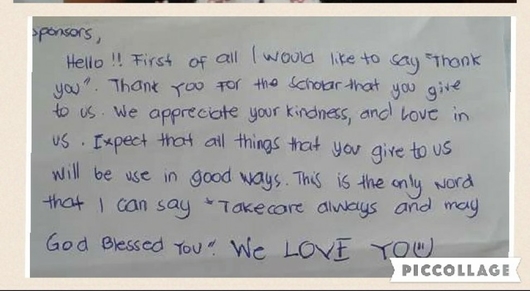 sponsors,
Hello!! First of all I would like to say "Thank
you". Thank you for the scholar that you give
to us. We appreciate your kindness, and love in
us. Expect that all things that you give to us
will be use in good ways. This is the only word
that I can say "Takecare always and may
God Blessed You". We LOVE YOU
PICCOLLAGE